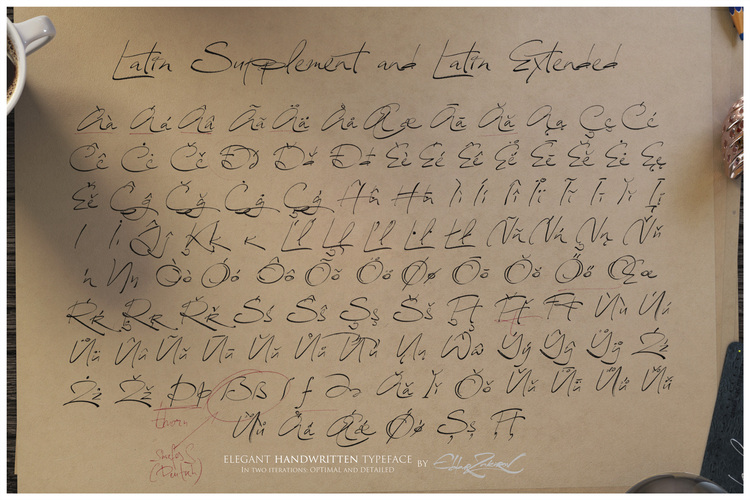 Latin Supplement and Latin Extended
Àà Áá Ââ Ãã Ää Åå Ææ Āā Ăă Ąą Çç Ćć
Ĉĉ Ċċ Čč Ðð Ďď Đđ Èè Éé Êê Ëë Ēē Ĕĕ Ėė Ęę
Ěě Ĝĝ Ğğ Ġġ Ģģ Ĥĥ Ħħ Ìì Íí Îî Ïï Ĩĩ Īī Ĭĭ Įį
ı İ Ĵĵ Ķķ ĸ Ĺĺ Ļļ Ľľ Ŀŀ Łł Ññ Ńń Ņņ Ňň
ŉ Ŋŋ Òò Óó Ôô Õõ Öö Øø Ōō Ŏŏ Őő Œœ
Ŕŕ Ŗŗ Řř Śś Ŝŝ Şş Šš Ţţ Ťť Ŧŧ Ùù Úú
Ûû Üü Ũũ Ūū Ŭŭ Ůů Űű Ųų Ŵŵ Ýý Ŷŷ Ÿÿ Źź
Żż Žž Þþ ẞß ſ ƒ ə Ǎǎ Ǐǐ Ǒǒ Ǔǔ Ǖǖ Ǘǘ Ǚǚ
thorn
Ǜǜ Ǻǻ Ǽǽ Ǿǿ Șș Țț
ELEGANT HANDWRITTEN TYPEFACE BY
IN TWO ITERATIONS: OPTIMAL AND DETAILED